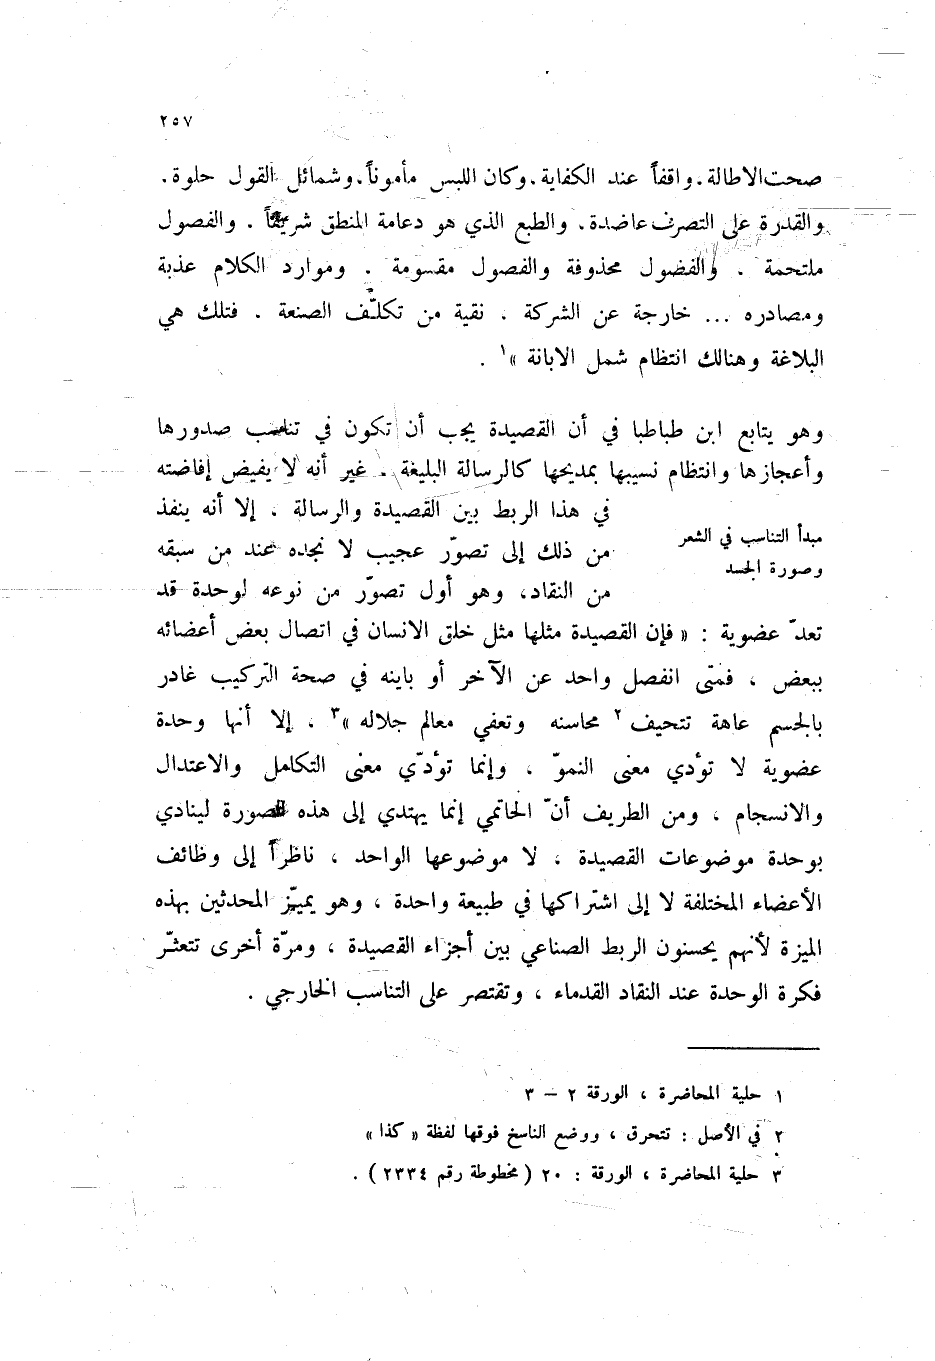 ٢٥٧
صحت الاطالة . واقفاً عند الكفاية . وكان اللبس مأموناً . وشمائل القول حلوة .
والقدرة على التصرف عاضدة . والطبع الذي هو دعامة المنطق شريفاً . والفصول
ملتحمة . والفضول محذوفة والفصول مقسومة . وموارد الكلام عذبة
ومصادره ... خارجة عن الشركة . نقية من تكلّف الصنعة . فتلك هي
البلاغة وهنالك انتظام شمل الابانة »١ .
وهو يتابع ابن طباطبا في أن القصيدة يجب أن تكون في تناسب صدورها
وأعجازها وانتظام نسيبها بمديحها كالرسالة البليغة . غير أنه لا يفيض إفاضته
في هذا الربط بين القصيدة والرسالة . إلا أنه ينفذ
مبدأ التناسب في الشعر
وصورة الجسد
من ذلك إلى تصوّر عجيب لا نجده عند من سبقه
من النقاد، وهو أول تصوّر من نوعه لوحدة قد
تعدّ عضوية : « فإن القصيدة مثلها مثل خلق الانسان في اتصال بعض أعضائه
ببعض ، فمتى انفصل واحد عن الآخر أو باينه في صحة التركيب غادر
بالجسم عاهة تتحيف ٢ محاسنه وتعفي معالم جلاله »٣ . إلا أنها وحدة
عضوية لا تؤدي معنى النموّ ، وإنما تؤدّي معنى التكامل والاعتدال
والانسجام ، ومن الطريف أنّ الحاتمي إنما يهتدي إلى هذه الصورة لينادي
بوحدة موضوعات القصيدة ، لا موضوعها الواحد ، ناظراً إلى وظائف
الأعضاء المختلفة لا إلى اشتراكها في طبيعة واحدة ، وهو يميّز المحدثين بهذه
الميزة لأنهم يحسنون الربط الصناعي بين أجزاء القصيدة ، ومرّة أخرى تتعثّر
فكرة الوحدة عند النقاد القدماء ، وتقتصر على التناسب الخارجي .
١ حلية المحاضرة ، الورقة ٢ – ٣
٢ في الأصل : تتحرق ، ووضع الناسخ فوقها لفظة « كذا »
٣ حلية المحاضرة ، الورقة : ٢٠ ( مخطوطة رقم ٢٣٣٤ ) .